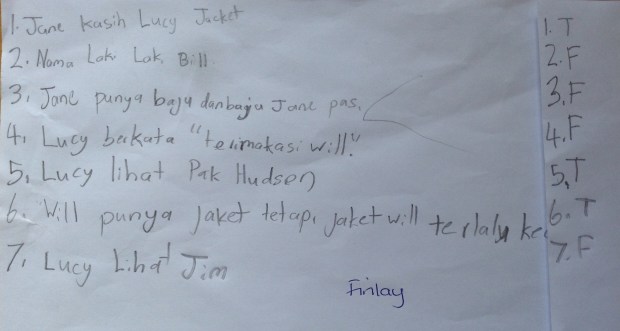 1. Jane kasih Lucy Jacket
2. Nama Laki Laki Bill
3. Jane punya baju dan baju Jane pas.
4. Lucy berkata "terimakasi will."
5. Lucy lihat Pak Hudsen
6. Will punya jaket tetapi jaket will terlalu
7. Lucy Lihat Jim
Finlay
1. T
2. F
3. F
4. F
5. T
6. T
7. F